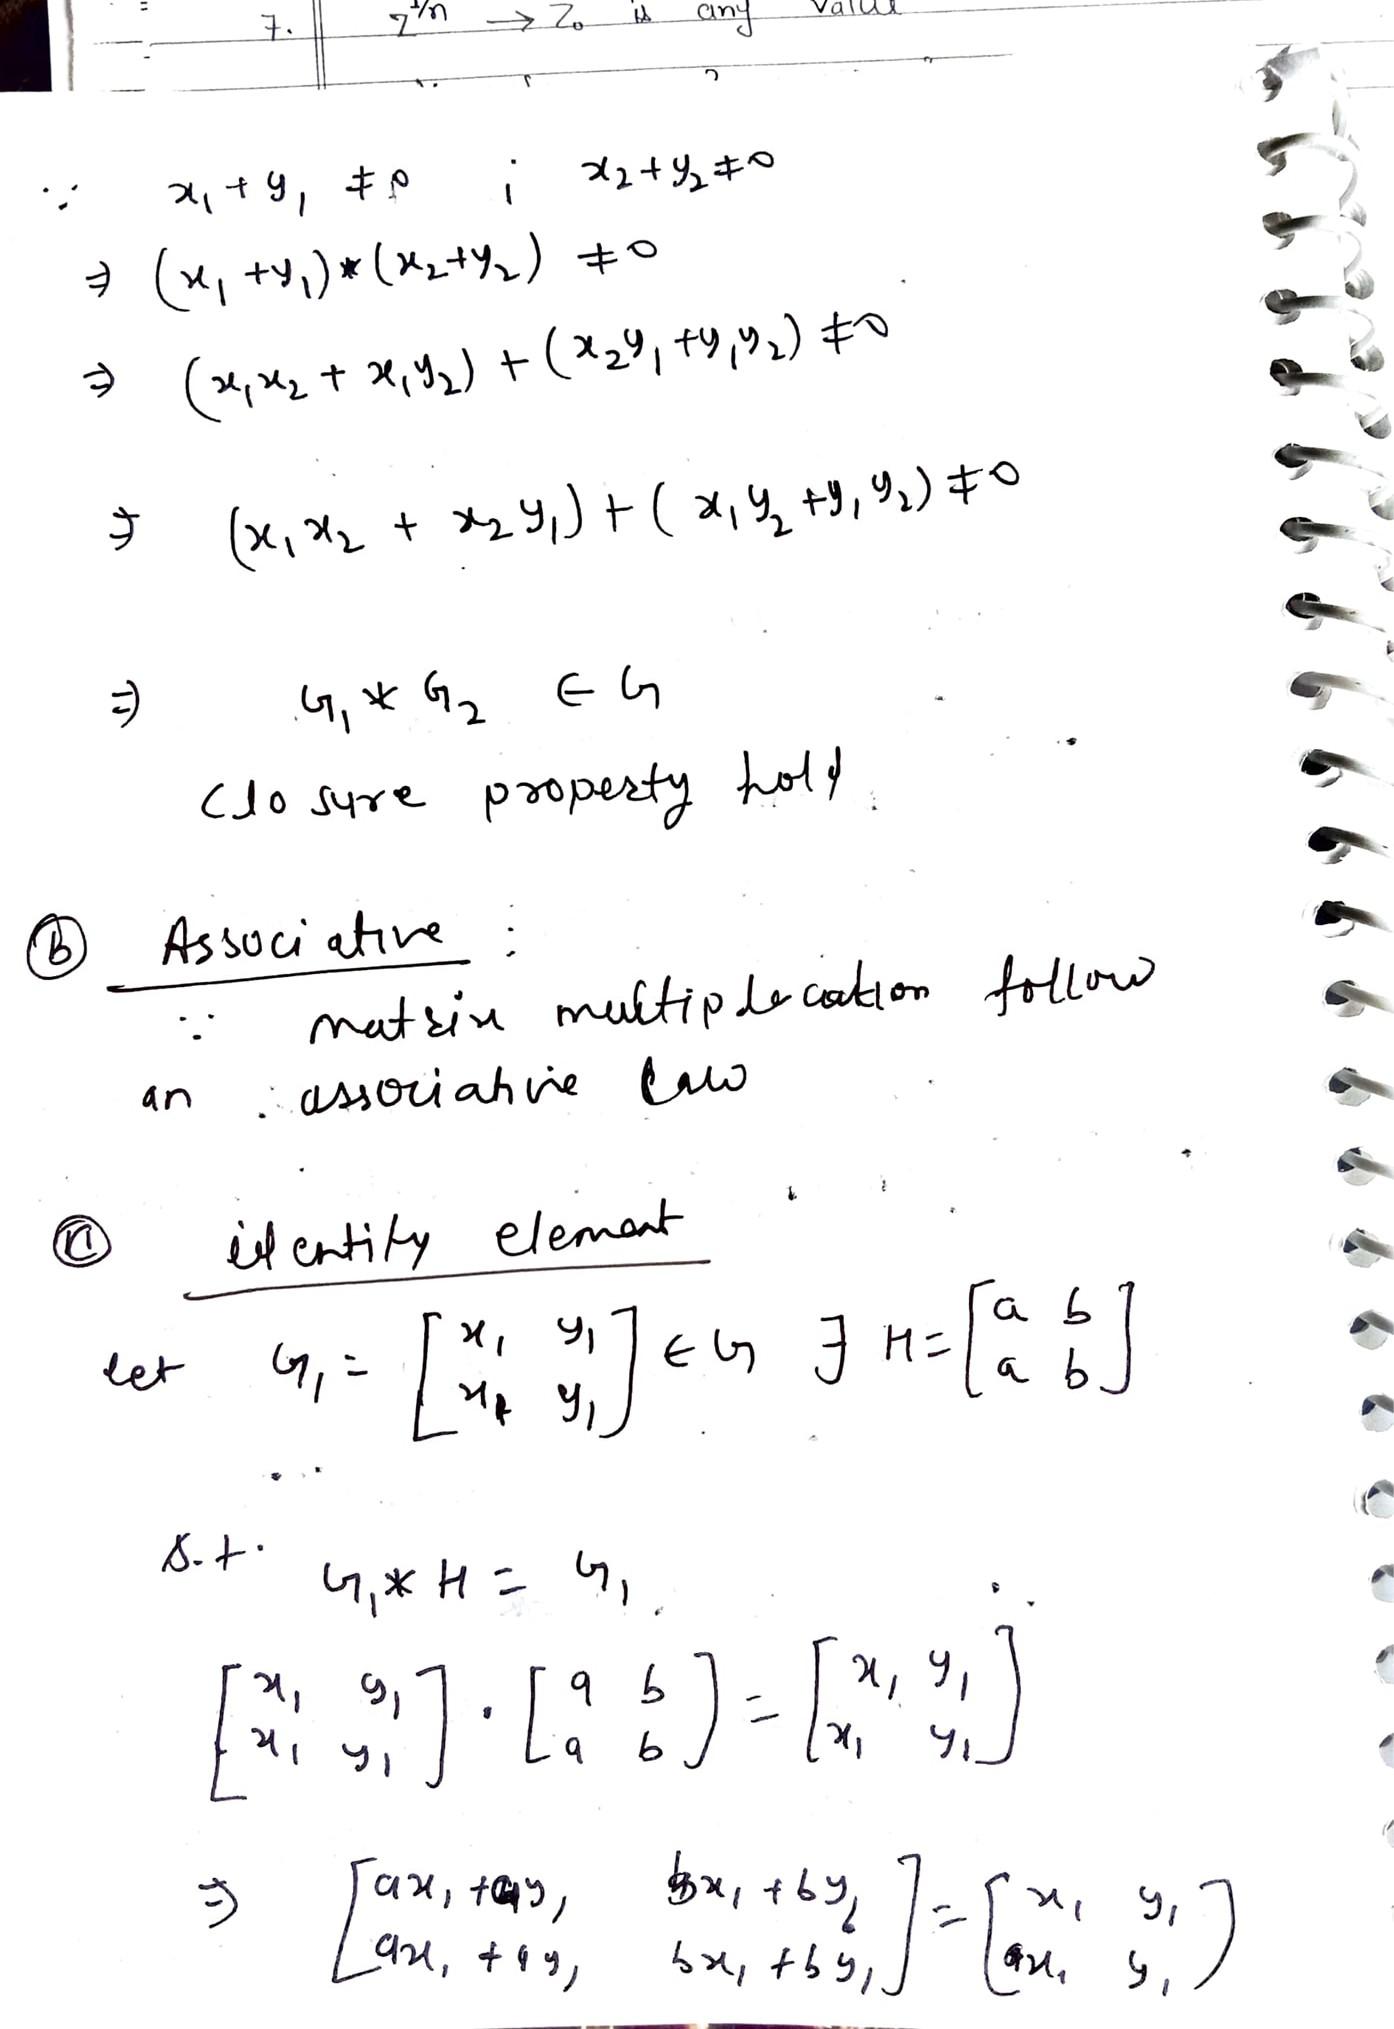 7. z^{1/n} → Z₀ is any value
∵ x₁ + y₁ ≠ 0 ; x₂ + y₂ ≠ 0
⇒ (x₁ + y₁) * (x₂ + y₂) ≠ 0
⇒ (x₁x₂ + x₁y₂) + (x₂y₁ + y₁y₂) ≠ 0
⇒ (x₁x₂ + x₂y₁) + (x₁y₂ + y₁y₂) ≠ 0
⇒ G₁ * G₂ ∈ G
closure property hold
(b) Associative :
∵ matrix multiplecation follow
an associative law
(c) identity element
let G₁ = [x₁ y₁; x₁ y₁] ∈ G ∃ H = [a b; a b]
s.t. G₁ * H = G₁
[x₁ y₁; x₁ y₁] · [a b; a b] = [x₁ y₁; x₁ y₁]
⇒ [ax₁ + ay₁ bx₁ + by₁; ax₁ + ay₁ bx₁ + by₁] = [x₁ y₁; x₁ y₁]